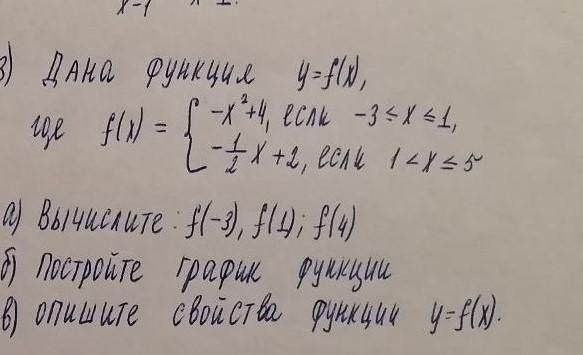 3) Дана функция y=f(x),
где f(x) = { -x²+4, если -3≤x≤1,
-1/2 x+2, если 1<x≤5
а) Вычислите: f(-3), f(1); f(4)
б) Постройте график функции
в) опишите свойства функции y=f(x).